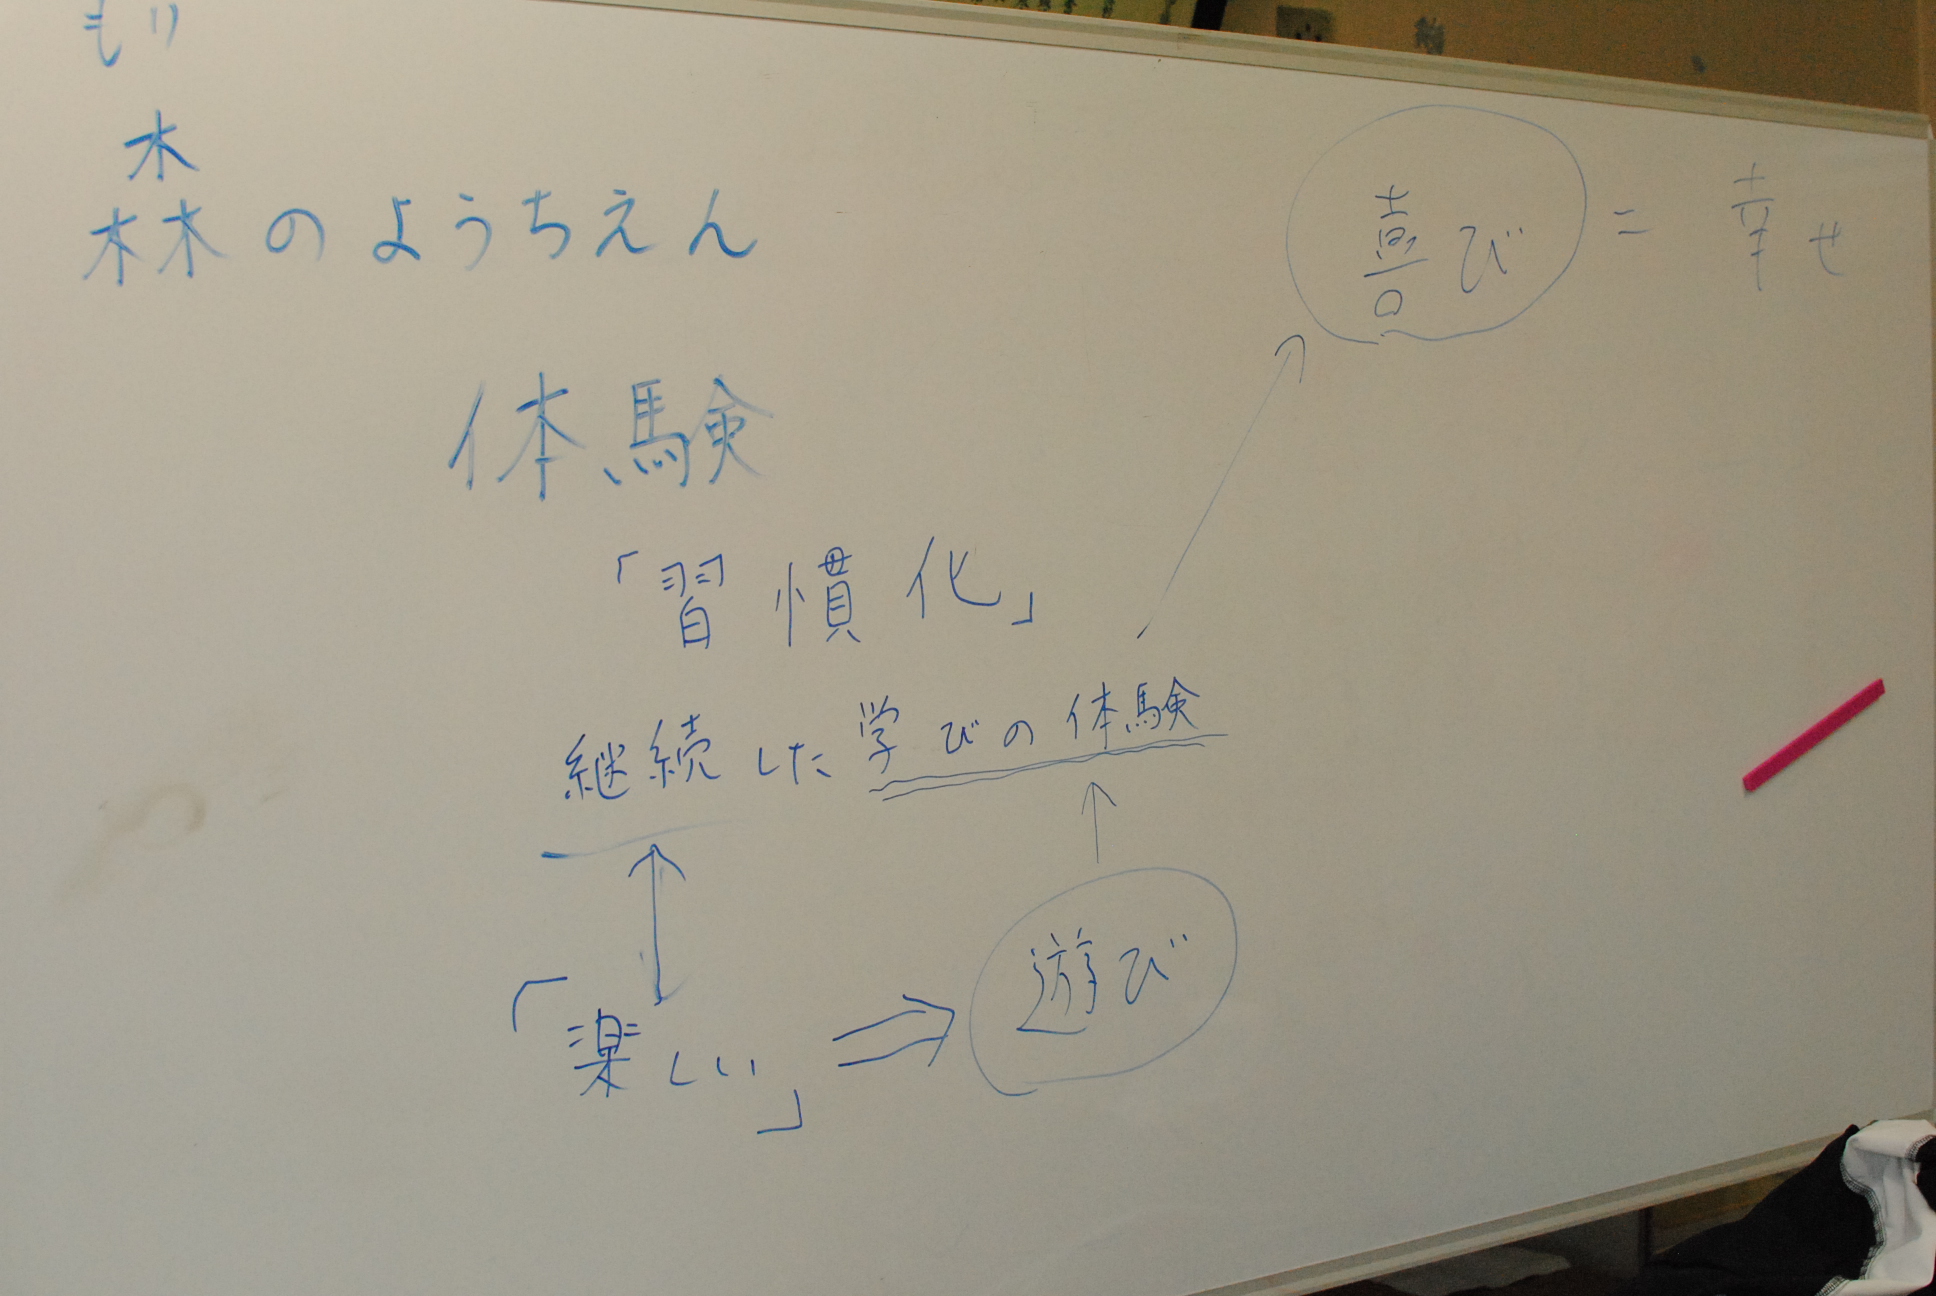 もり
森のようちえん
喜び = 幸せ
体験
「習慣化」
継続した学びの体験
「楽しい」⇒遊び